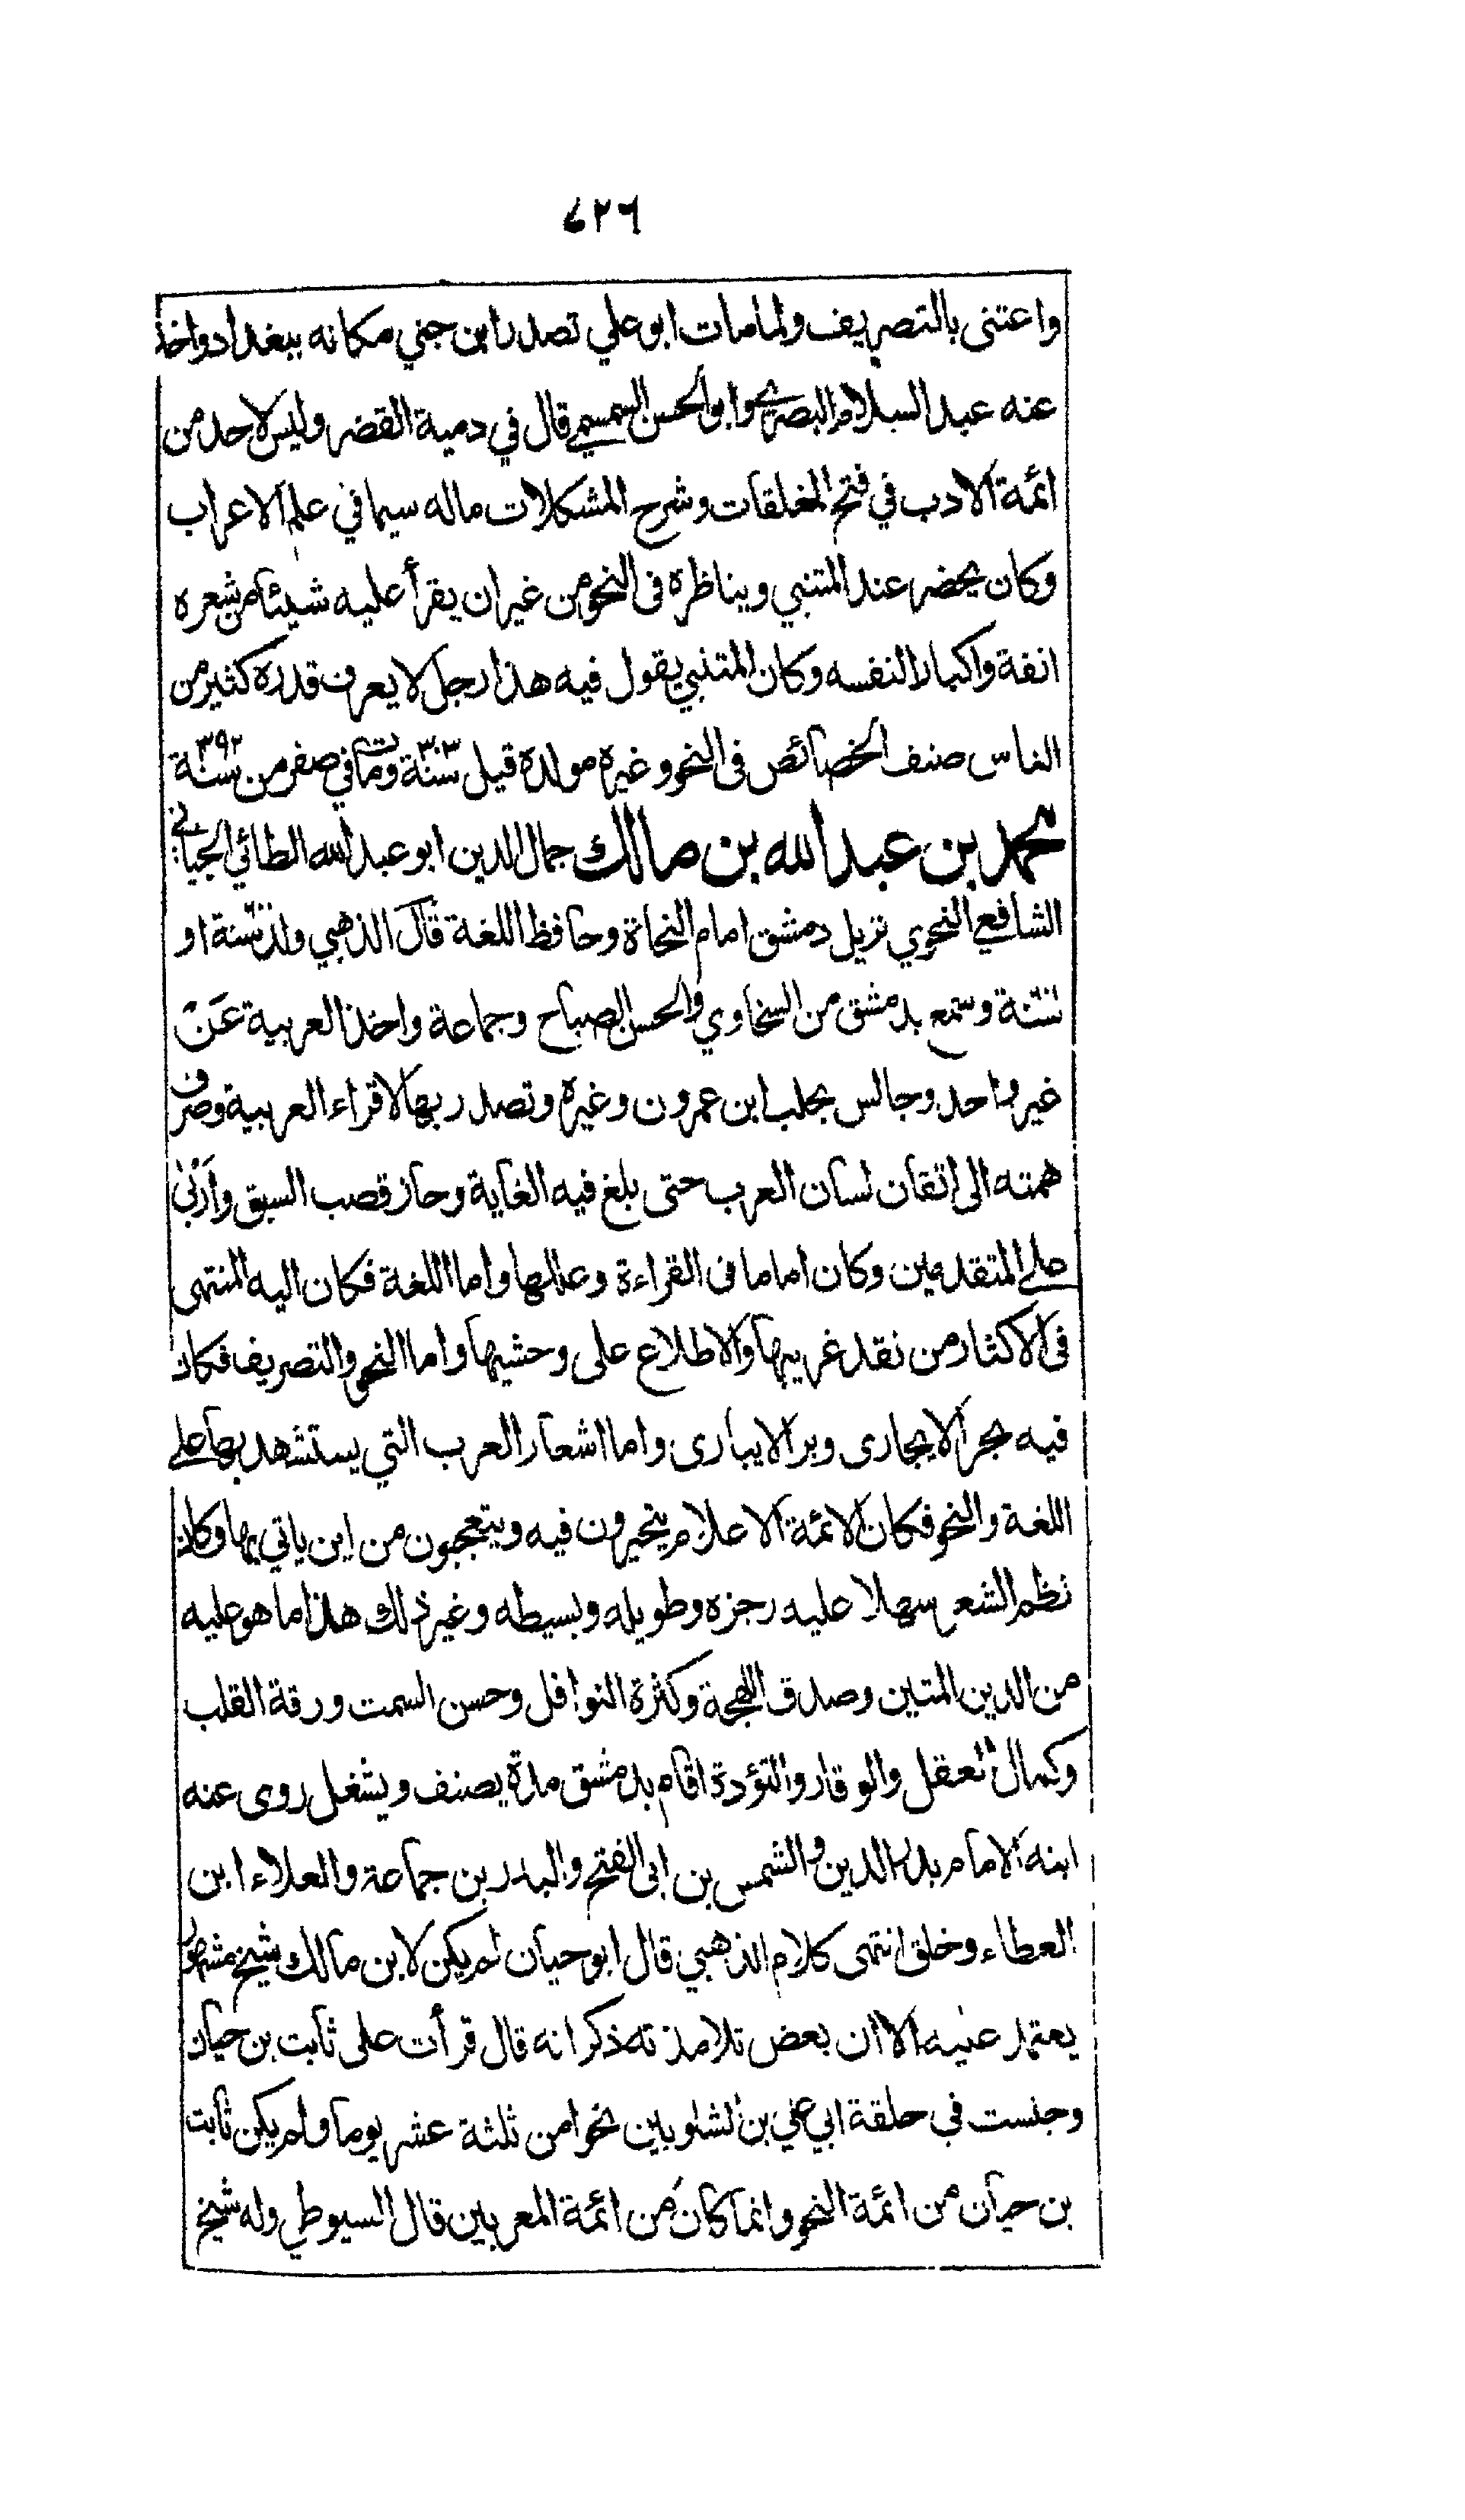 ٦٢٦
واعتنى بالتصريف ولما مات ابو علي تصدر ابن جني مكانه ببغداد واخذ
عنه عبد السلام البصري وابو الحسن السمسمي قال في دمية القضر وليس لاحد من
ائمة الادب في فتح المغلقات وشرح المشكلات ماله سيما في علم الاعراب
وكان يحضر عند المتنبي ويناظره فى النحو من غير ان يقرأ عليه شيئا من شعره
انفة واكبارا لنفسه وكان المتنبي يقول فيه هذا رجل لا يعرف قدره كثير من
الناس صنف الخصائص فى النحو وغيره مولده قبل سنة ٣٠٣ ومات في صفر من سنة ٣٩٢
محمد بن عبد الله بن مالك جمال الدين ابو عبد الله الطائي الجياني
الشافعي النحوي نزيل دمشق امام النحاة وحافظ اللغة قال الذهبي ولد سنة او
سنة وسمع بدمشق من السخاوي والحسن الصباح وجماعة واخذ العربية عن
غير واحد وجالس بحلب ابن عمرون وغيره وتصدر بها لاقراء العربية وصرف
همته الى اتقان لسان العرب حتى بلغ فيه الغاية وحاز قصب السبق واربى
على المتقدمين وكان اماما فى القراءة وعللها واما اللغة فكان اليه المنتهى
فى الاكثار من نقد غريبها والاطلاع على وحشيها واما النحو والتصريف فكان
فيه بحر الايجارى وبر الايبارى واما اشعار العرب التي يستشهد بها على
اللغة والنحو فكان الائمة الاعلام يتحيرون فيه ويتعجبون من اين ياتي بها وكان
نظم الشعر سهلا عليه رجزه وطويله وبسيطه وغير ذلك هذا ما هو عليه
من الدين المتين وصدق اللهجة وكثرة النوافل وحسن السمت ورقة القلب
وكمال العقل والوقار والتؤدة اقام بدمشق مدة يصنف ويشغل روى عنه
ابنه الامام بدر الدين والشمس بن ابى الفتح والبدر بن جماعة والعلاء ابن
العطاء وخلق انتهى كلام الذهبي قال ابو حيان لم يكن لابن مالك شيخ مشهور
يعتمد عليه الا ان بعض تلامذته ذكر انه قال قرأت على ثابت بن حيان
وجلست في حلقة ابي علي بن الشلوبين نحوا من ثلثة عشر يوما ولم يكن ثابت
بن حيان من ائمة النحو وانما كان من ائمة المعربين قال السيوطي وله شيخ